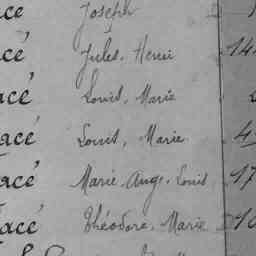 acé Joseph
acé Jules. Henri 14
acé Louis. Marie
acé Louis, Marie 4
acé Marie. Ange. Louis 17
acé Théodore. Marie 10